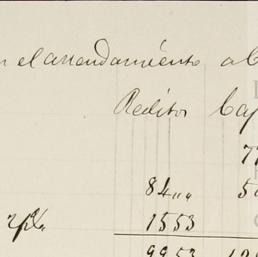 n el arrendamiento al
Reditos Cap
7
84,, 5
2 p% 1553
9953 12